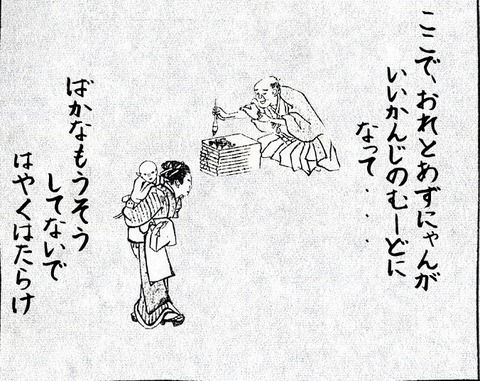 ここで、おれとあずにゃんが
いいかんじのむーどに
なって・・・
ばかなもうそう
してないで
はやくはたらけ